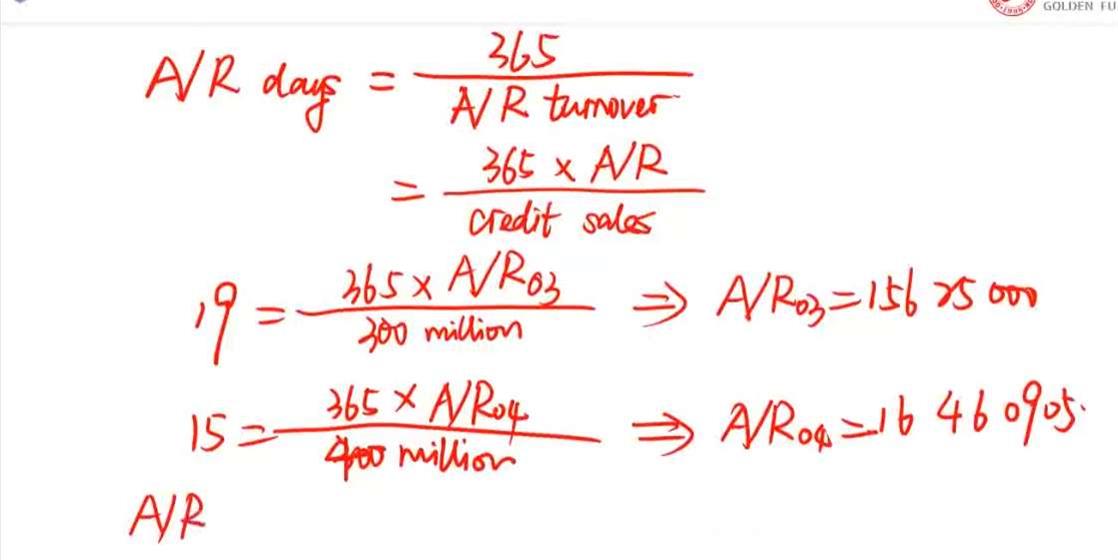 GOLDEN FU
A/R days = 365 / A/R turnover
= 365 × A/R / credit sales
19 = 365 × A/R03 / 300 million ⇒ A/R03 = 156 25 000
15 = 365 × A/R04 / 400 million ⇒ A/R04 = 16 460905
A/R